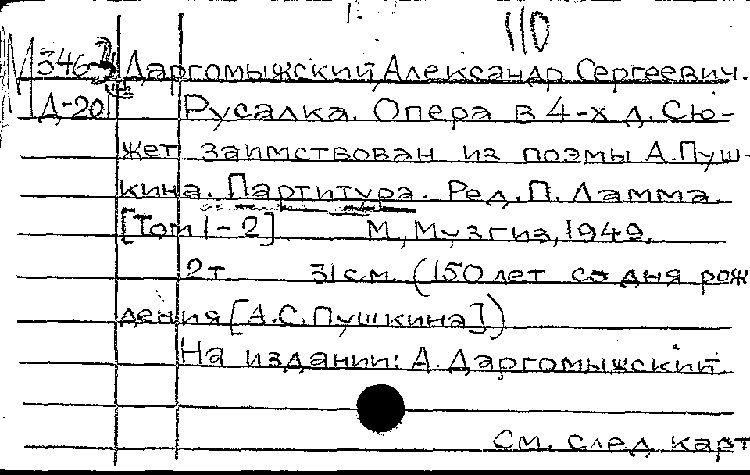 110
М346-3 Даргомыжский, Александр Сергеевич.
Д-20 Русалка. Опера в 4-х д. Сю-
жет заимствован из поэмы А. Пуш-
кина. Партитура. Ред. П. Ламма.
[Том 1-2] М., Музгиз, 1949.
2 т. 31 см. (150 лет со дня рож
дения [А.С. Пушкина])
На издании: А. Даргомыжский
См. след. карт